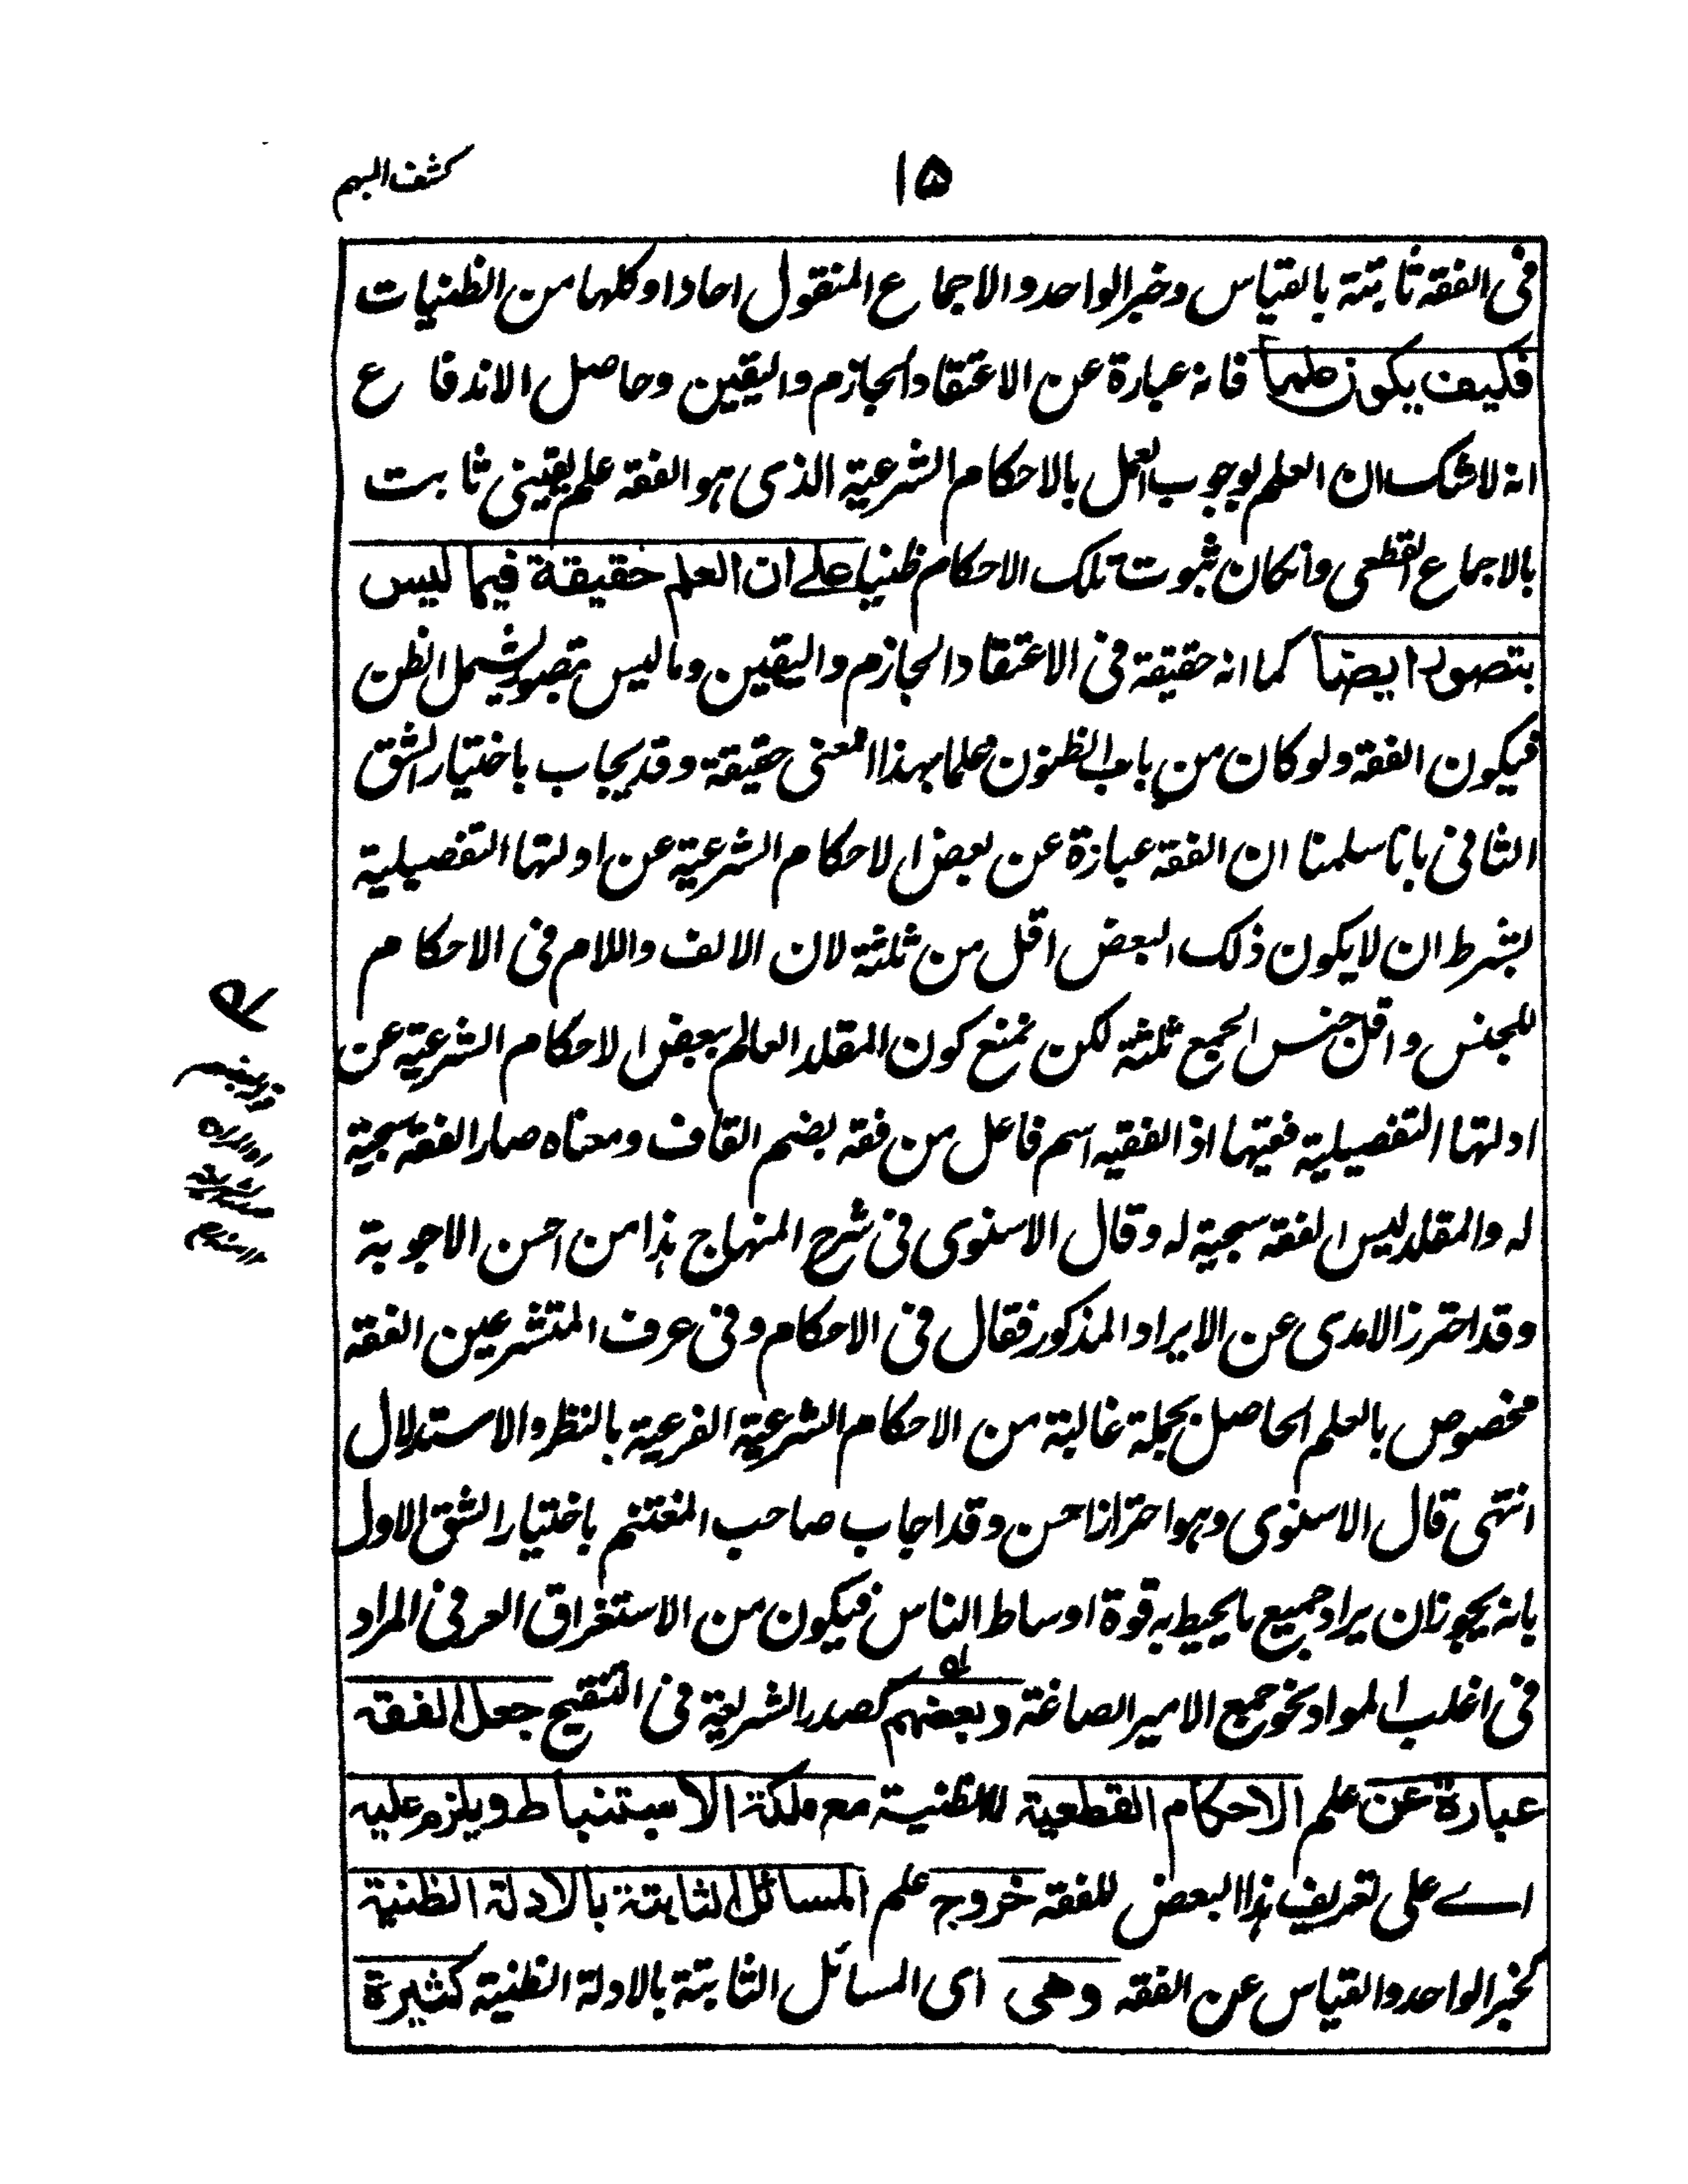 ۱۵
كشف المبهم
فى الفقه ثابتة بالقياس وخبر الواحد والاجماع المنقول احادا وكلها من الظنيات
فكيف يكون علما فانه عبارة عن الاعتقاد الجازم واليقين وحاصل الاندفاع
انه لاشك ان العلم بوجوب العمل بالاحكام الشرعية الذى هو الفقه علم يقينى ثابت
بالاجماع القطعى وانكان ثبوت تلك الاحكام ظنيا على ان العلم حقيقة فيما ليس
بتصور ايضا كما انه حقيقة فى الاعتقاد الجازم واليقين وما ليس بتصور يشمل الظن
فيكون الفقه ولو كان من باب الظنون علما بهذا المعنى حقيقة وقد يجاب باختيار الشق
الثانى بانا سلمنا ان الفقه عبارة عن بعض الاحكام الشرعية عن ادلتها التفصيلية
بشرط ان لا يكون ذلك البعض اقل من ثلثة لان الالف واللام فى الاحكام
للجنس واقل جنس الجمع ثلثة لكن نمنع كون المقلد العالم ببعض الاحكام الشرعية عن
ادلتها التفصيلية فقيها اذ الفقيه اسم فاعل من فقه بضم القاف ومعناه صار الفقه سجية
له والمقلد ليس الفقه سجية له وقال الاسنوى فى شرح المنهاج هذا من احسن الاجوبة
وقد احترز الامدى عن الايراد المذكور فقال فى الاحكام وفى عرف المتشرعين الفقه
مخصوص بالعلم الحاصل بجملة غالبة من الاحكام الشرعية الفرعية بالنظر والاستدلال
انتهى قال الاسنوى وهو احتراز احسن وقد اجاب صاحب المغتنم باختيار الشق الاول
بانه يجوز ان يراد جميع ما يحيط به قوة اوساط الناس فيكون من الاستغراق العرفى المراد
فى اغلب المواد نحو جمع الامير الصاغة وبعضهم كصدر الشريعة فى التنقيح جعل الفقه
عبارة عن علم الاحكام القطعية لا الظنية مع ملكة الاستنباط ويلزم عليه
اے على تعريف هذا البعض للفقه خروج علم المسائل الثابتة بالادلة الظنية
كخبر الواحد والقياس عن الفقه وهى اى المسائل الثابتة بالادلة الظنية كثيرة